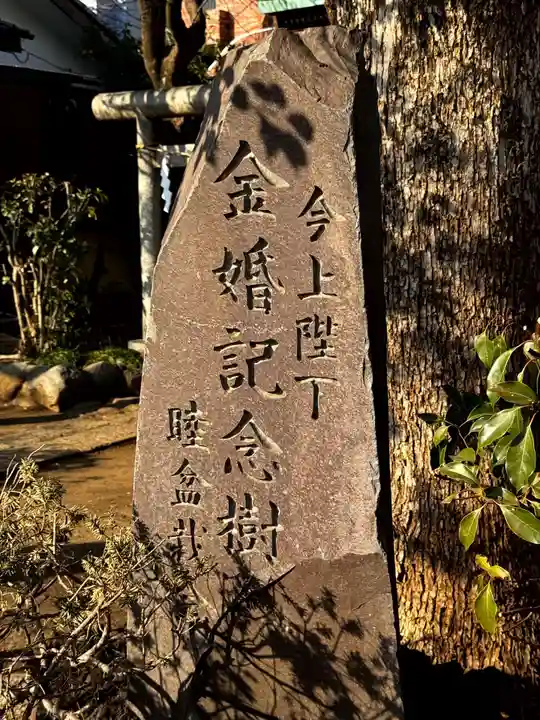 今上陛下
金婚記念樹
睦盆栽